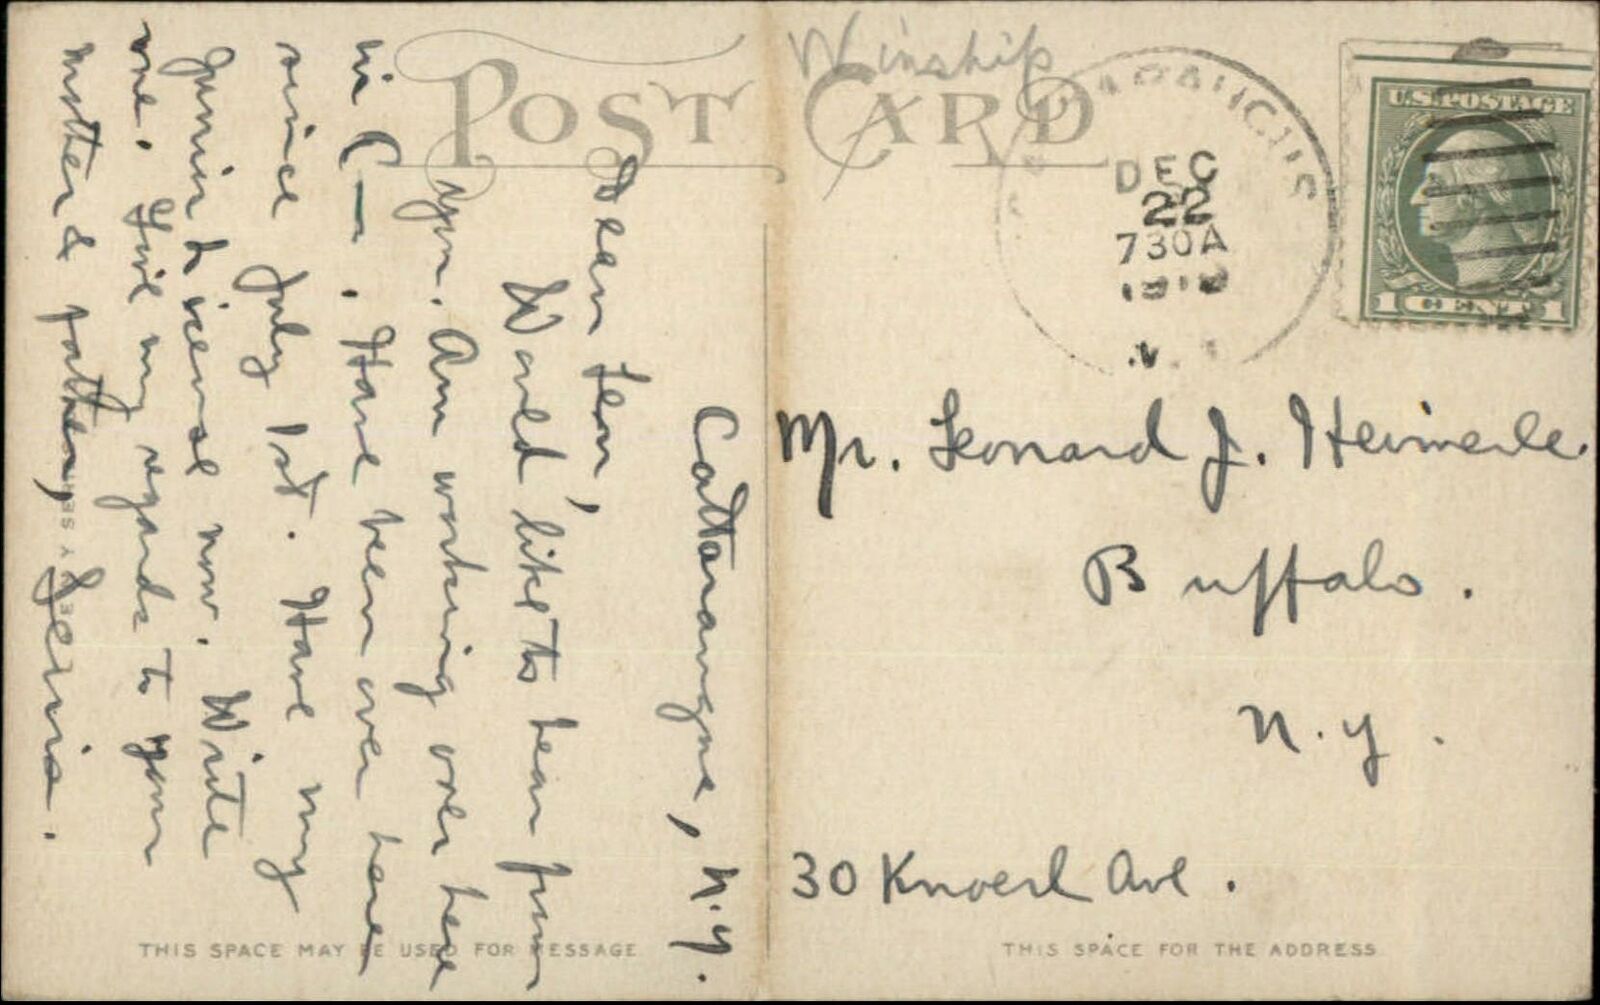 Winship
POST CARD
DEC
22
730A
U.S. POSTAGE
1 CENT 1
Cattaraugus, N.Y.
Dear Len,
Would like to hear from
you. Am working over here
in C—. Have been over here
since July 1st. Have my
Junior license now. Write
me. Give my regards to your
mother & father,
Mr. Leonard J. Heimerle.
Buffalo.
N.Y.
30 Knoerl Ave.
THIS SPACE MAY BE USED FOR MESSAGE
THIS SPACE FOR THE ADDRESS